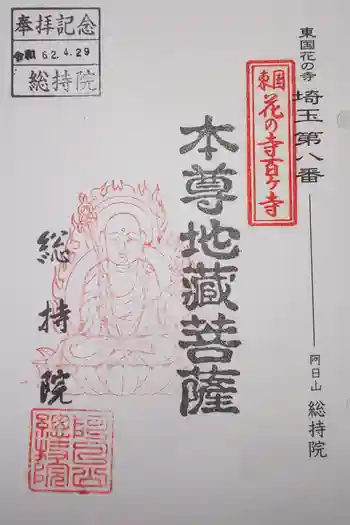 東国花の寺 埼玉第八番
阿日山 総持院
東国
花の寺百ヶ寺
本尊地蔵菩薩
総持院
奉拝記念
令和 62.4.29
総持院
総持院